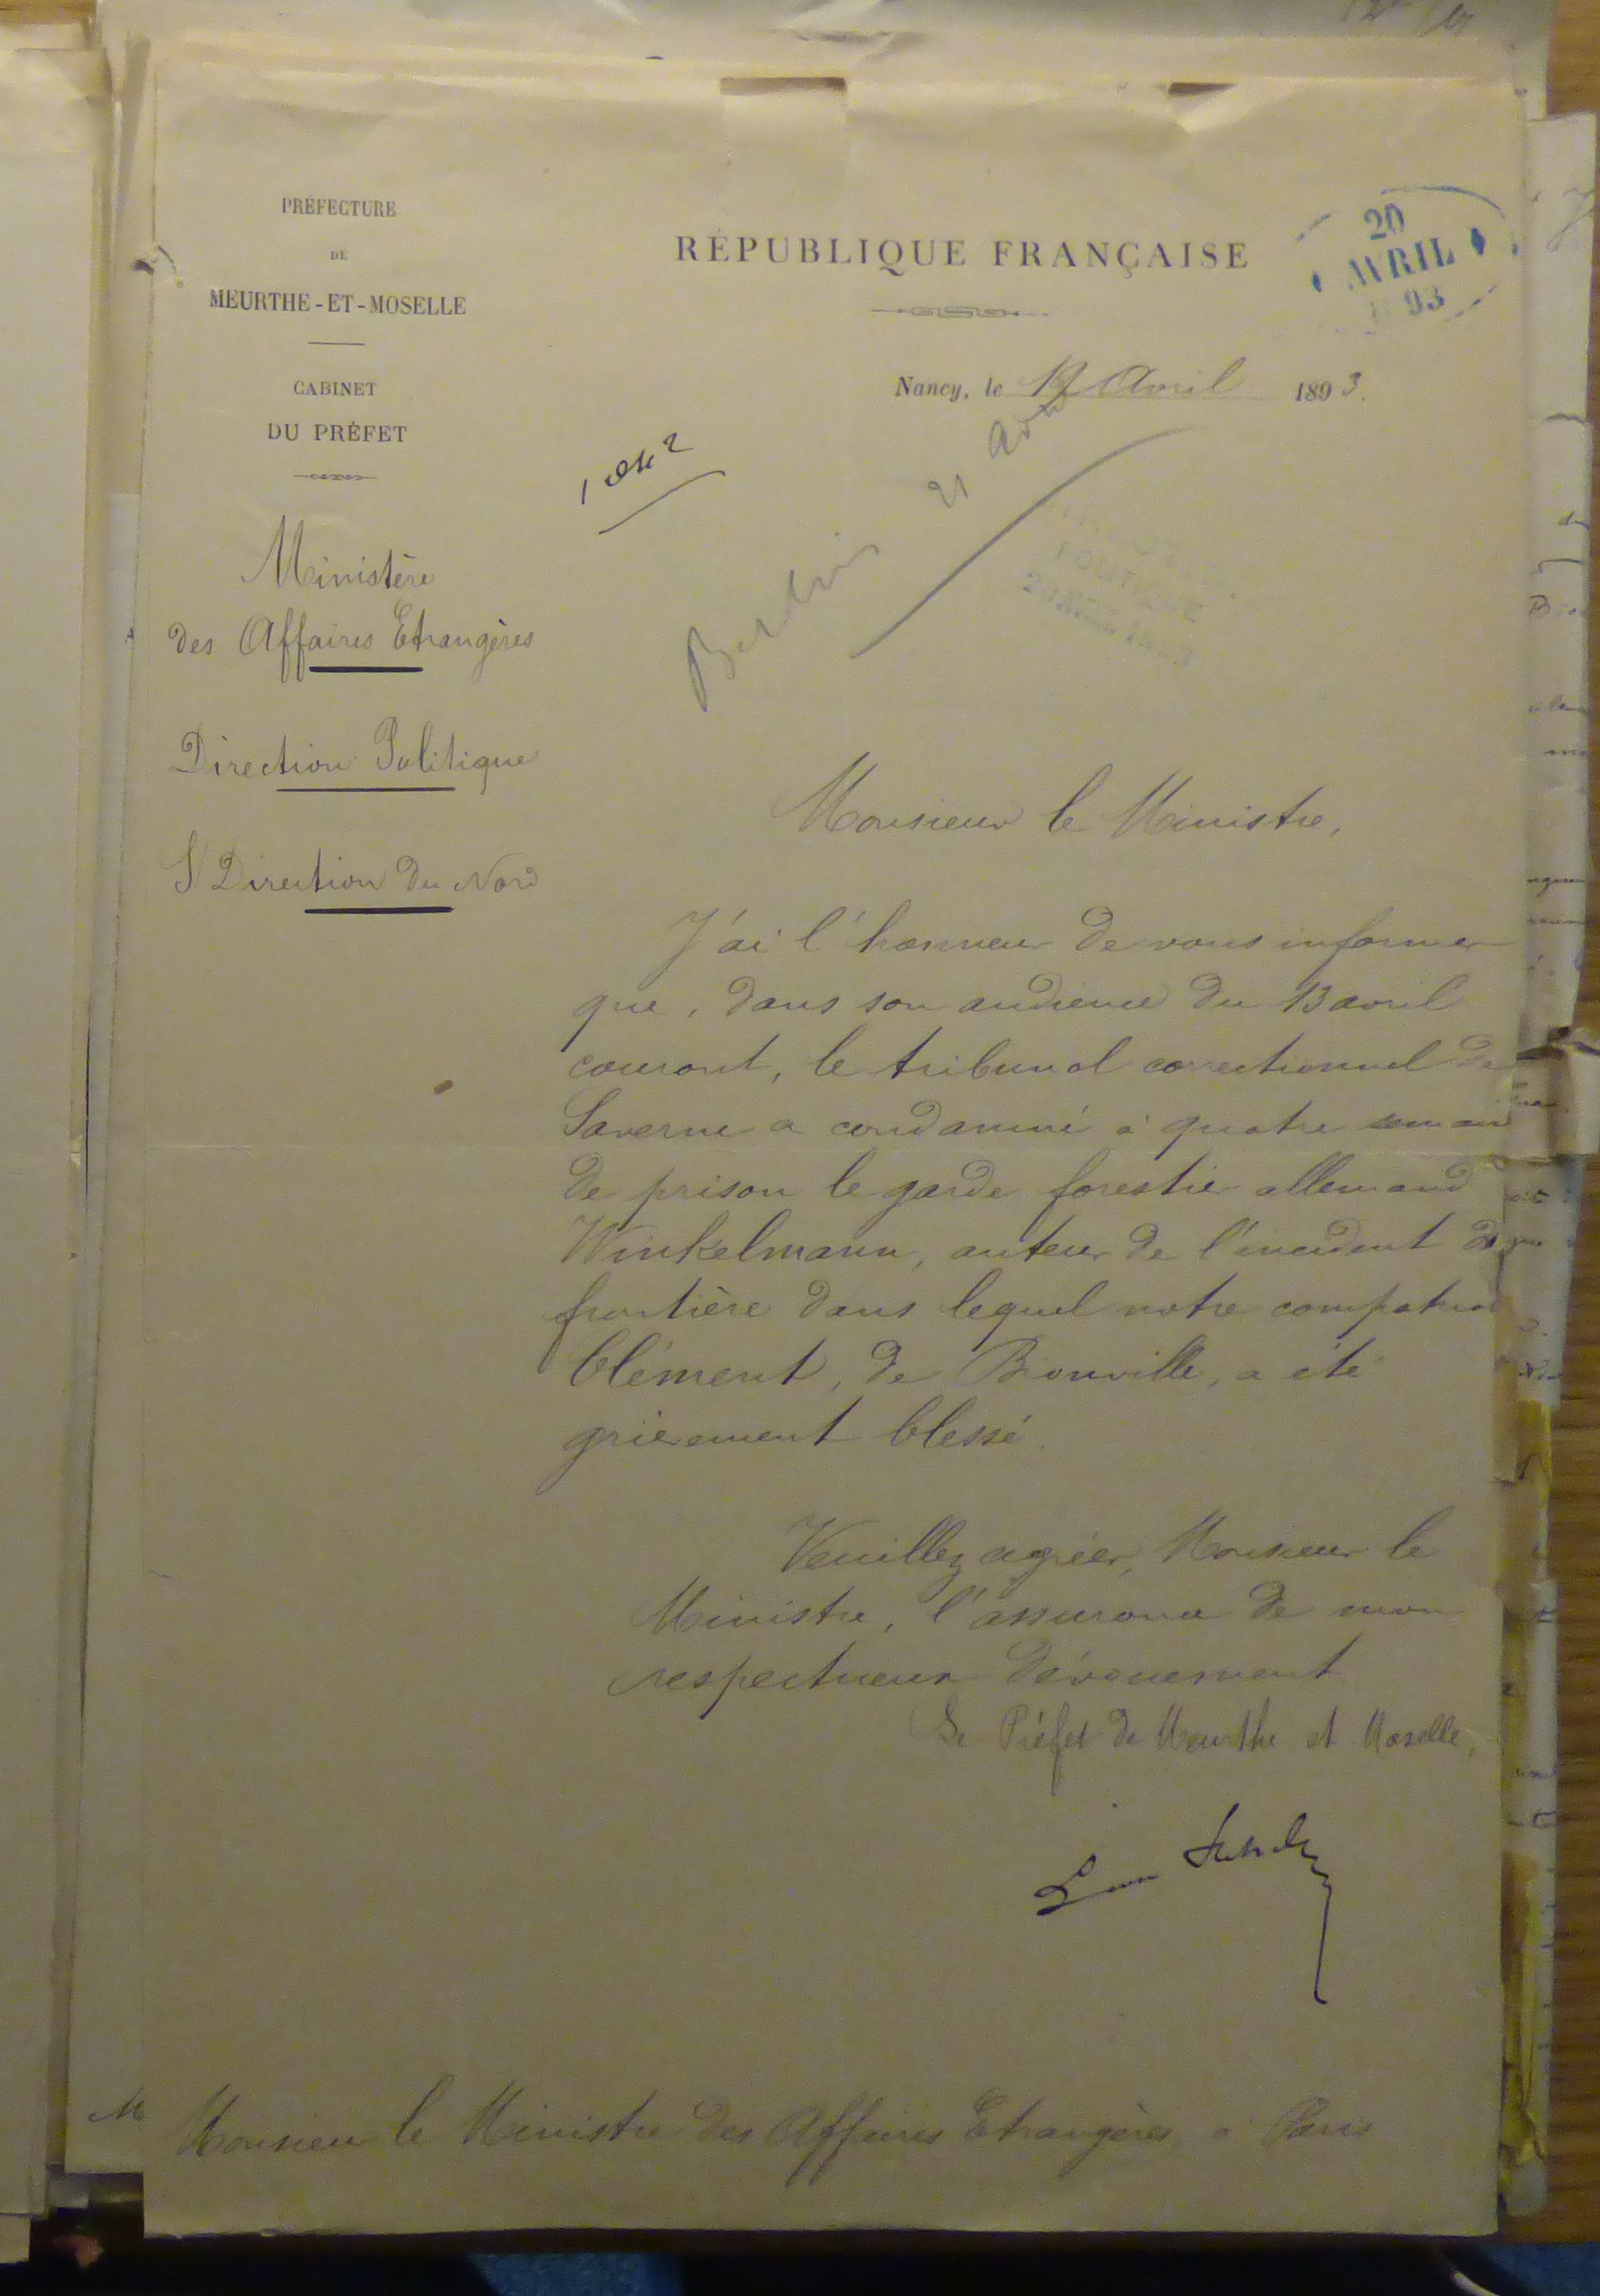 PRÉFECTURE
DE
MEURTHE-ET-MOSELLE
CABINET
DU PRÉFET
RÉPUBLIQUE FRANÇAISE
20
AVRIL
93
Nancy, le Avril 1893.
21 Avril
Berlin
POLITIQUE
Ministère
des Affaires Etrangères
Direction Politique
S/ Direction du Nord
Monsieur le Ministre,
J'ai l'honneur de vous informer
que, dans son audience du 13 avril
courant, le tribunal correctionnel de
Saverne a condamné à quatre semain
de prison le garde forestier allemand
Winkelmann, auteur de l'incident de
frontière dans lequel notre compatriot
Clément, de Bionville, a été
grièvement blessé.
Veuillez agréer, Monsieur le
Ministre, l'assurance de mon
respectueux dévouement
Le Préfet de Meurthe et Moselle,
Monsieur le Ministre des Affaires Etrangères, à Paris